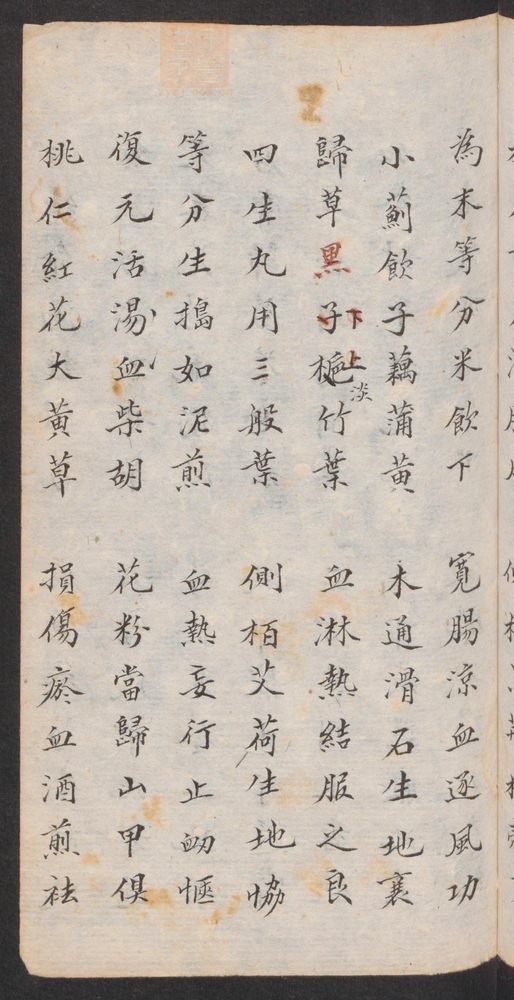 為末等分米飲下　寬腸涼血逐風功
小薊飲子藕蒲黃　木通滑石生地襄
歸草黑子梔淡竹葉　血淋熱結服之良
下上
四生丸用三般葉　側栢艾荷生地協
等分生搗如泥煎　血熱妄行止衂愜
復元活湯血柴胡　花粉當歸山甲俱
桃仁紅花大黃草　損傷瘀血酒煎祛